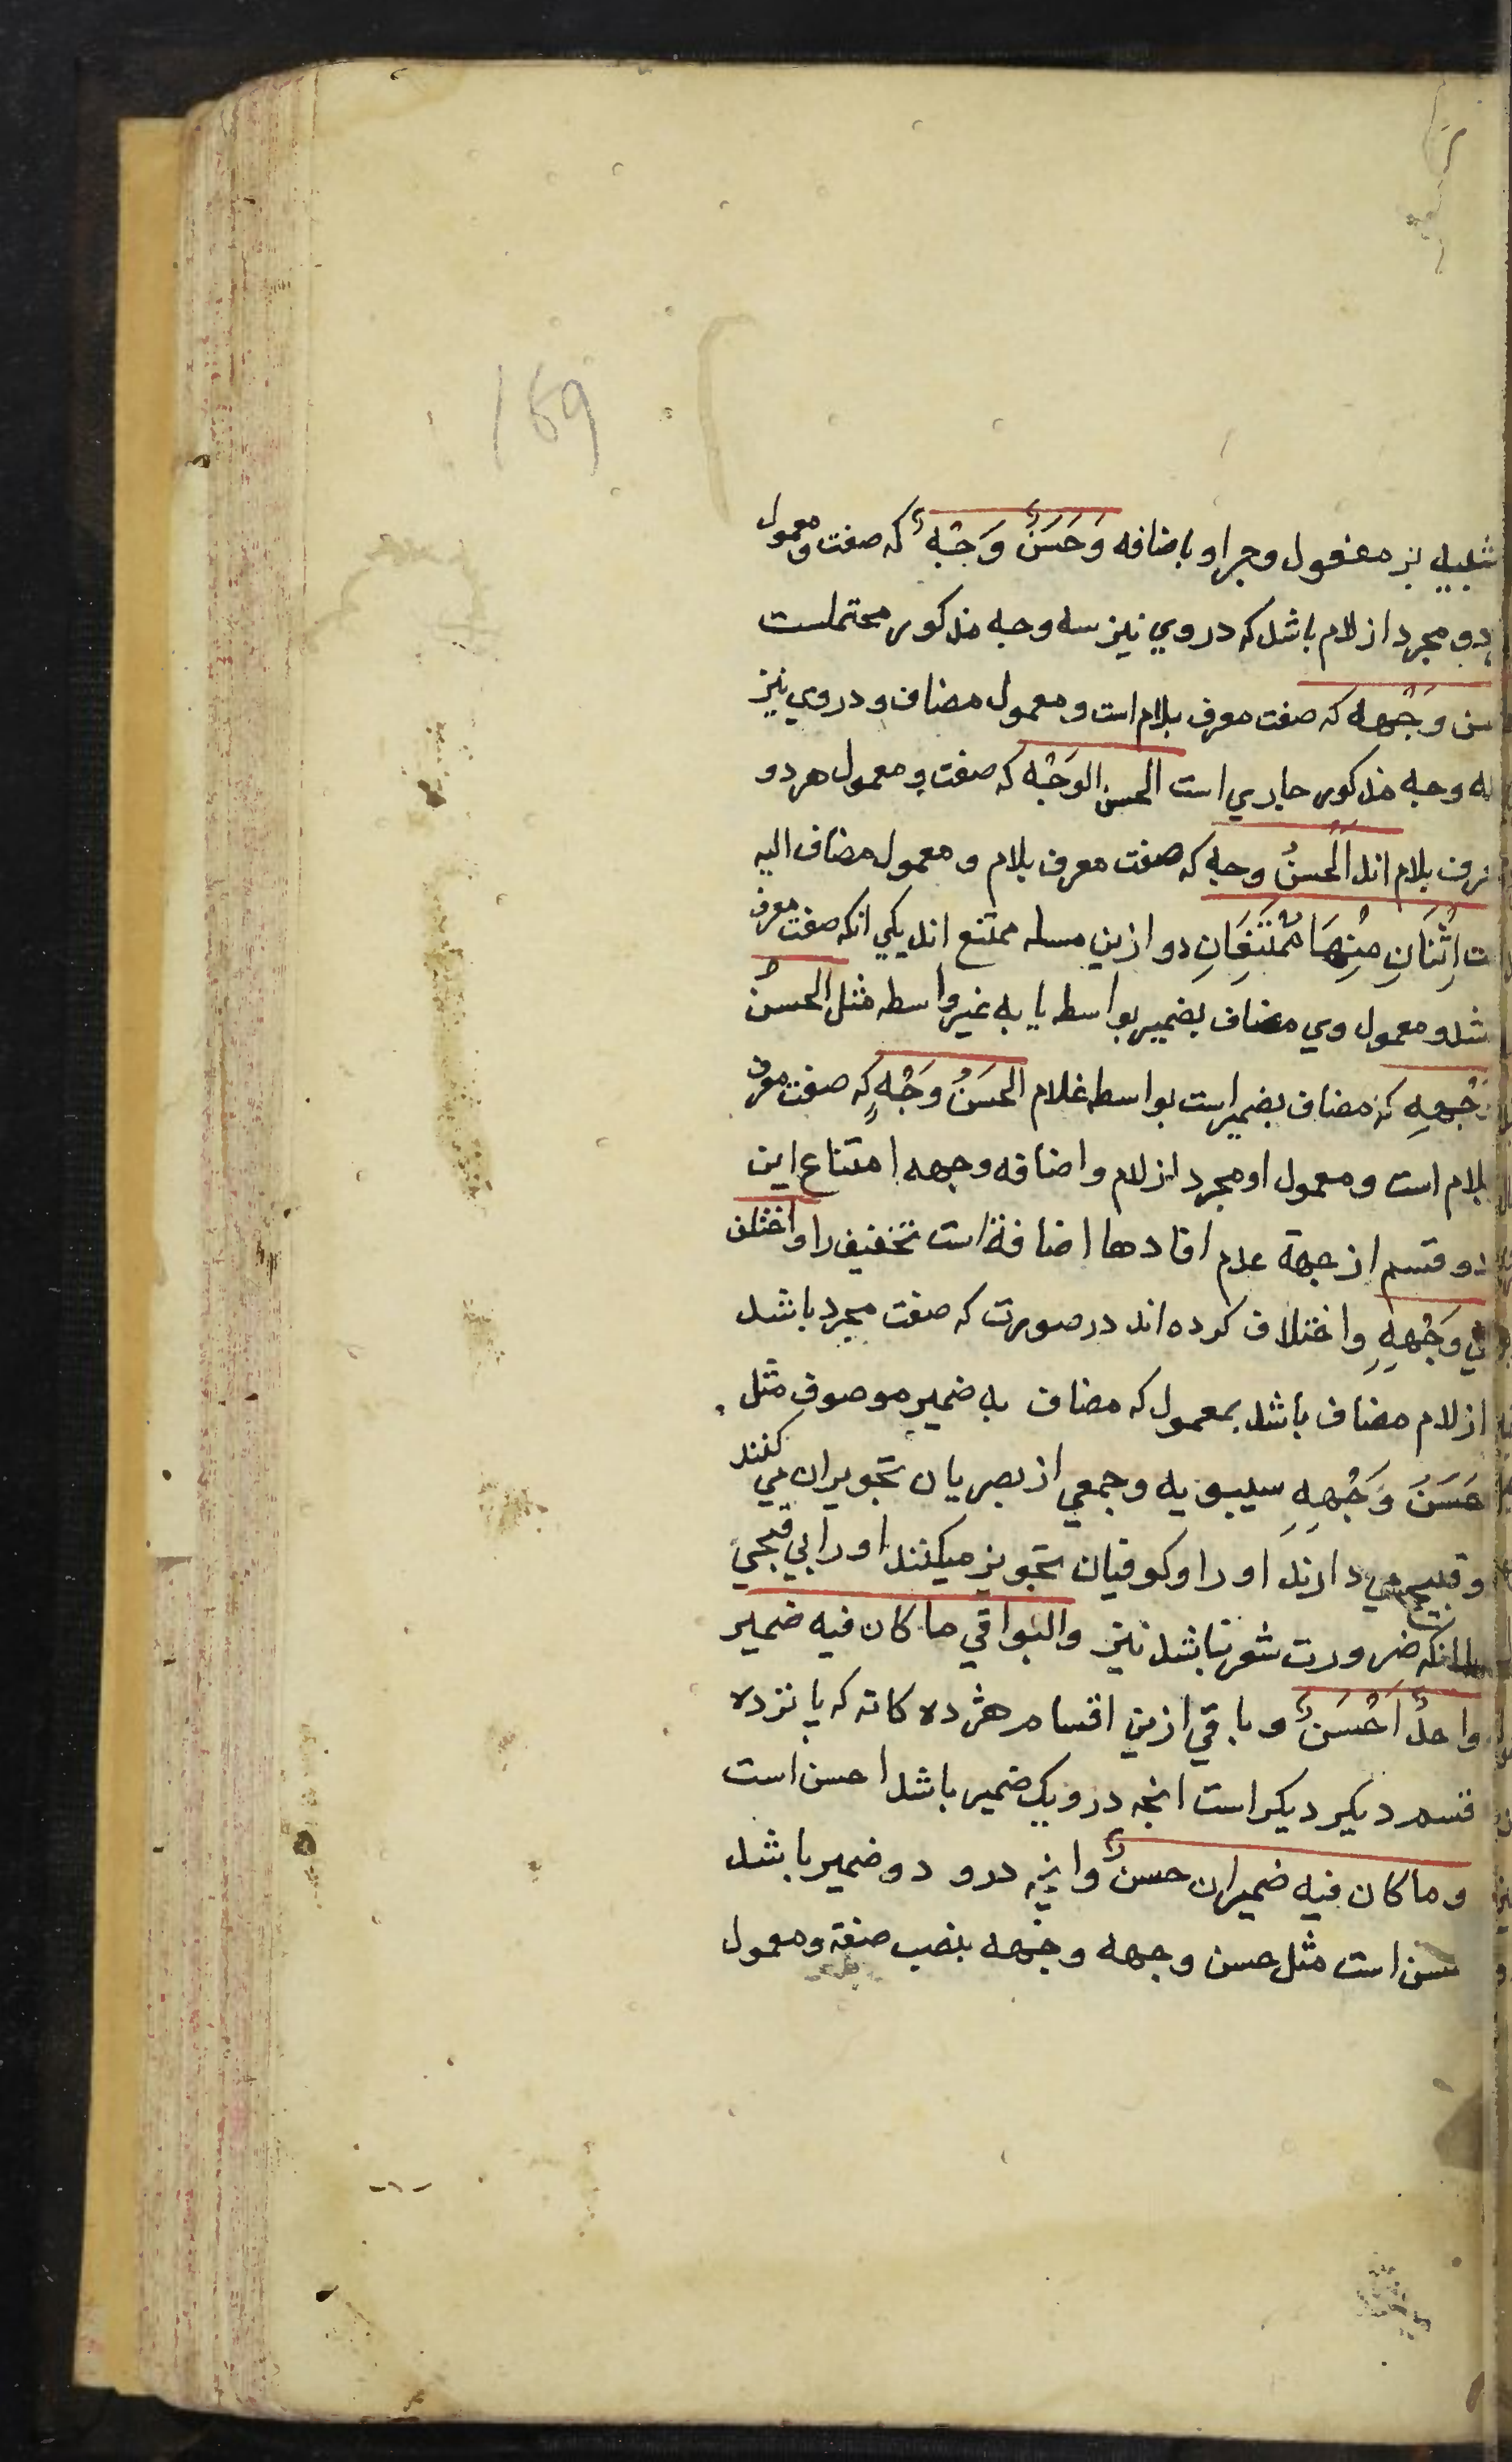 169
تشبیه بر مفعول وجر او باضافه وَحَسَنٌ وَجْهٍ که صفت ومعمول
دو مجرد از لام باشد که در وي نیز سه وجه مذکور محتملست
سن وَجْهه که صفت معرف بلام است ومعمول مضاف ودر وي نیز
له وجه مذکور جاري است الحسن الوَجْه که صفت ومعمول هر دو
معرف بلام اند الَحسنُ وجه که صفت معرف بلام و معمول مضاف الیه
ت اِثْنَانِ مِنْهَا مُمْتَنِعَانِ دو ازین مسله ممتنع اند یکي انکه صفت معرف
شد ومعمول وي مضاف بضمیر بواسطه یا به غیر واسطه مثل الحسنُ
وَجْهِهِ که مضاف بضمیر است بواسطه غلام الحَسَنُ وَجْهٍ که صفت معرف
بلام است ومعمول او مجرد از لام واضافه وجهه امتناع این
دو قسم از جهة عدم افادها اضافة است تخفیف را واختلف
في وَجْهِهِ واختلاف کرده اند در صورت که صفت مجرد باشد
از لام مضاف باشد بمعمول که مضاف به ضمیر موصوف مثل
حَسَنَ وَجْهِهِ سیبویه وجمعي از بصریان تجویز ان مي کنند
وقبیح مي دارند او را وکوفیان تجویز میکنند او را بي قبحي
انکه ضرورت شعر نباشد نیز والبواقي ما کان فیه ضمیر
واحدٌ اَحْسَنٌ وباقي ازین اقسام هژده کانه که پانزده
قسم دیکر دیکر است انچه در و یک ضمیر باشد احسن است
وما کان فیه ضمیران حسنٌ وانچه درو دو ضمیر باشد
حسن است مثل حسن وجهه وجهه بنصب صفة ومعمول